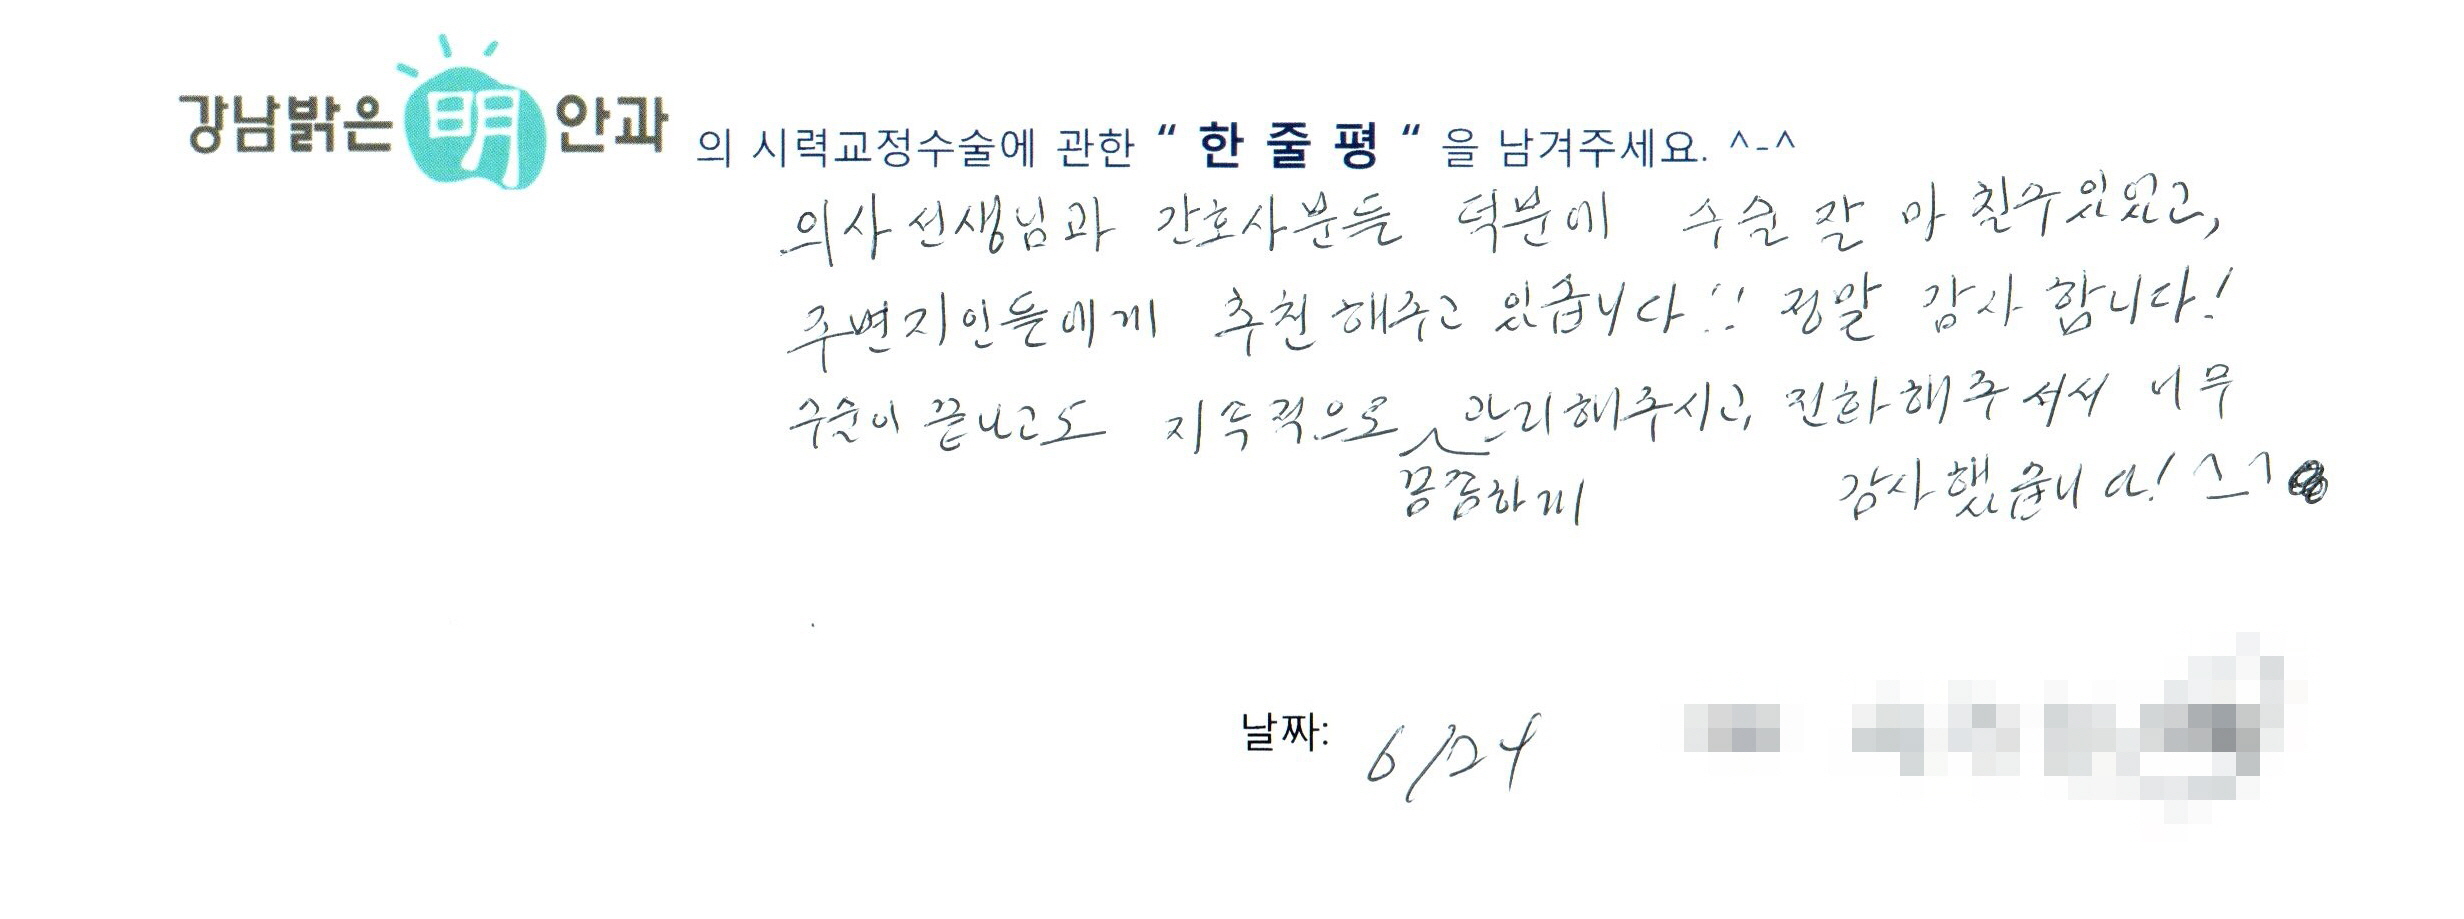 강남밝은明안과 의 시력교정수술에 관한 “ 한 줄 평 “ 을 남겨주세요. ^-^
의사선생님과 간호사분들 덕분에 수술 잘 마칠수있었고,
주변지인들에게 추천해주고 있습니다!! 정말 감사합니다!
수술이 끝나고도 지속적으로 관리해주시고, 전화해주셔서 너무
꼼꼼하게 감사했습니다! ^^
날짜: 6/24